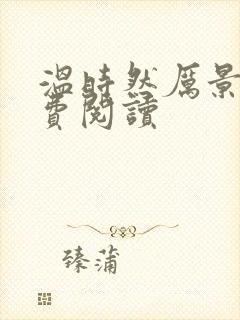 温時然厲景
費閱讀
臻蒲